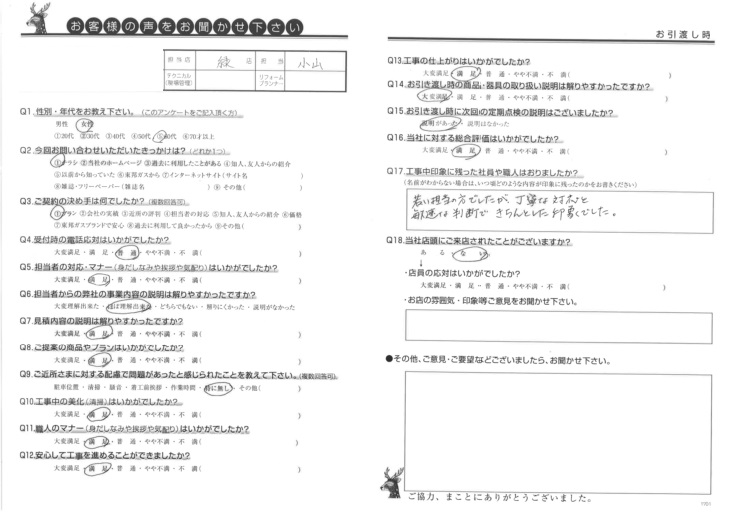 お客様の声をお聞かせ下さい
担当店 緑 店 担当 小山
テクニカル(現場管理) リフォームプランナー
Q1 性別・年代をお教え下さい。(このアンケートをご記入頂く方)
男性 女性
①20代 ②30代 ③40代 ④50代 ⑤60代 ⑥70才以上
Q2 今回お問い合わせいただいたきっかけは?(どれか1つ)
①チラシ ②当社のホームページ ③過去に利用したことがある ④知人、友人からの紹介
⑤以前から知っていた ⑥東邦ガスから ⑦インターネットサイト(サイト名 )
⑧雑誌・フリーペーパー(雑誌名 ) ⑨その他( )
Q3 ご契約の決め手は何でしたか?(複数回答可)
①チラシ ②会社の実績 ③近所の評判 ④担当者の対応 ⑤知人、友人からの紹介 ⑥価格
⑦東邦ガスブランドで安心 ⑧過去に利用して良かったから ⑨その他( )
Q4 受付時の電話応対はいかがでしたか?
大変満足・満 足・普 通・やや不満・不 満( )
Q5 担当者の対応・マナー(身だしなみや挨拶や気配り)はいかがでしたか?
大変満足・満 足・普 通・やや不満・不 満( )
Q6 担当者からの弊社の事業内容の説明は解りやすかったですか?
大変理解出来た・ほぼ理解出来た・どちらでもない・解りにくかった・説明がなかった
Q7 見積内容の説明は解りやすかったですか?
大変満足・満 足・普 通・やや不満・不 満( )
Q8 ご提案の商品やプランはいかがでしたか?
大変満足・満 足・普 通・やや不満・不 満( )
Q9 ご近所さまに対する配慮で問題があったと感じられたことを教えて下さい。(複数回答可)
駐車位置・清掃・騒音・着工前挨拶・作業時間・特に無し・その他( )
Q10 工事中の美化(清掃)はいかがでしたか?
大変満足・満 足・普 通・やや不満・不 満( )
Q11 職人のマナー(身だしなみや挨拶や気配り)はいかがでしたか?
大変満足・満 足・普 通・やや不満・不 満( )
Q12 安心して工事を進めることができましたか?
大変満足・満 足・普 通・やや不満・不 満( )
お引渡し時
Q13 工事の仕上がりはいかがでしたか?
大変満足・満 足・普 通・やや不満・不 満( )
Q14 お引き渡し時の商品・器具の取り扱い説明は解りやすかったですか?
大変満足・満 足・普 通・やや不満・不 満( )
Q15 お引き渡し時に次回の定期点検の説明はございましたか?
説明があった・説明はなかった
Q16 当社に対する総合評価はいかがでしたか?
大変満足・満 足・普 通・やや不満・不 満( )
Q17 工事中印象に残った社員や職人はおりましたか?
(名前がわからない場合は、いつ頃どのような内容が印象に残ったのかをお書きください)
若い担当の方でしたが、丁寧な対応と
敏速な判断で きちんとした印象でした。
Q18 当社店頭にご来店されたことがございますか?
あ る・な い
↓
・店員の応対はいかがでしたか?
大変満足・満 足・普 通・やや不満・不 満( )
・お店の雰囲気・印象等ご意見をお聞かせ下さい。
●その他、ご意見・ご要望などございましたら、お聞かせ下さい。
ご協力、まことにありがとうございました。